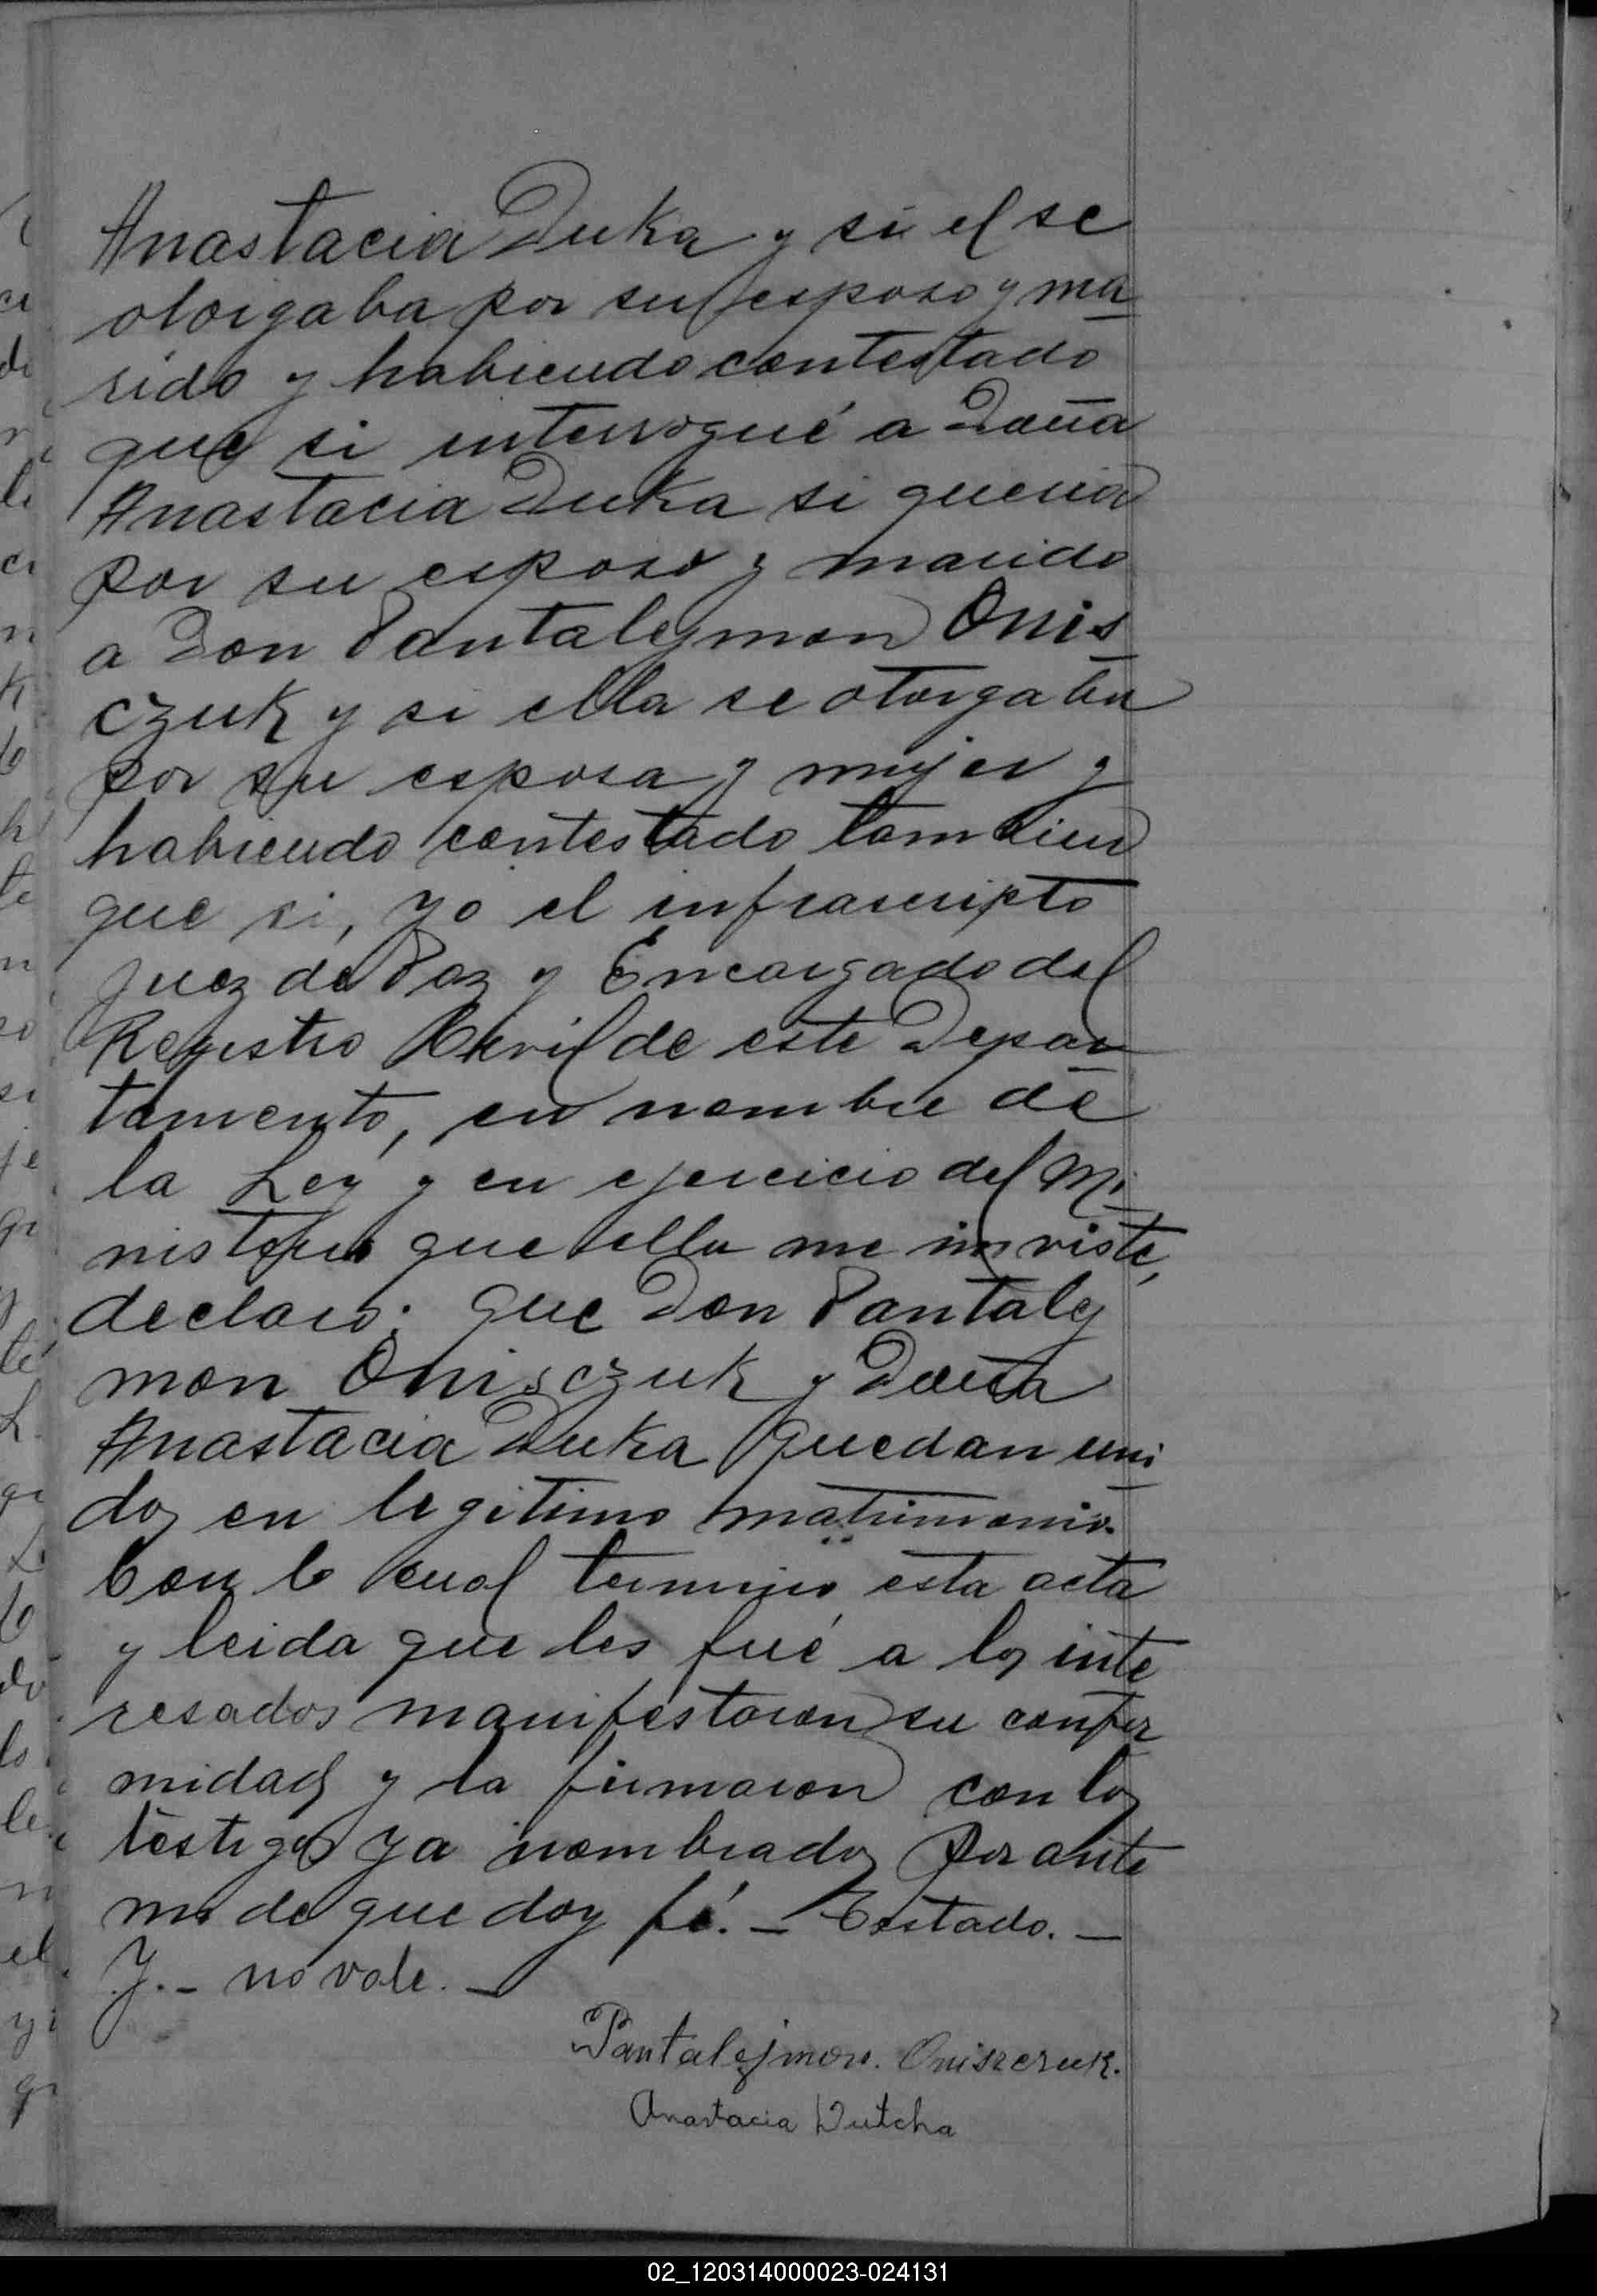 Anastacia Duka y si el se
otorgaba por su esposo y ma_
rido y habiendo contestado
que si interrogué a Doña
Anastacia Duka si queria
por su esposo y marido
a Don Pantalejmon Onis_
czuk y si ella se otorgaba
por su esposa y mujer y
habiendo contestado tambien
que si, yo el infrascripto
Juez de Paz y Encargado del
Registro Civil de este Depar_
tamento, en nombre de
la Ley y en ejercicio del Mi_
nisterio que ella me inviste,
declaro: Que Don Pantalej
mon Onisczuk y Doña
Anastacia Duka quedan uni_
dos en legitimo matrimonio.
Con lo cual termino esta acta
y leida que les fué a los inte
resados manifestaron su confor
midad y la firmaron con los
testigos ya nombrados por ante
mi de que doy fé. _ Testado. _
Y. _ no vale. _
Pantalejmon. Oniszczuk.
Anastacia Dutcha
02_120314000023-024131